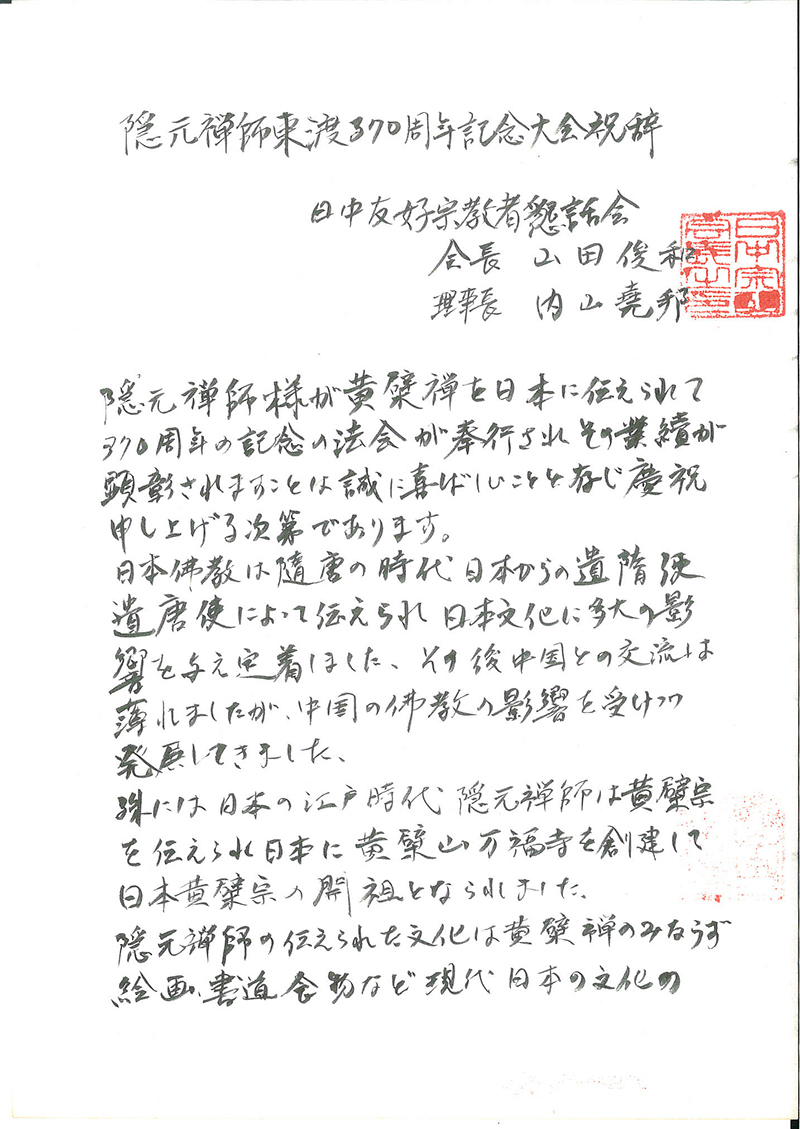 隠元禅師東渡370周年記念大会祝辞
日中友好宗教者懇話会
会長 山田俊和
理事長 内山堯邦
隠元禅師様が黄檗禅を日本に伝えられて
370周年の記念の法会が奉行されその業績が
顕彰されますことは誠に喜ばしいことと存じ慶祝
申し上げる次第であります。
日本佛教は隋唐の時代日本からの遣隋使
遣唐使によって伝えられ日本文化に多大の影
響を与え定着しました、その後中国との交流は
薄れましたが、中国の佛教の影響を受けつつ
発展してきました、
殊には日本の江戸時代 隠元禅師は黄檗宗
を伝えられ日本に黄檗山万福寺を創建して
日本黄檗宗の開祖となられました、
隠元禅師の伝えられた文化は黄檗禅のみならず
絵画、書道 食物など現代日本の文化の